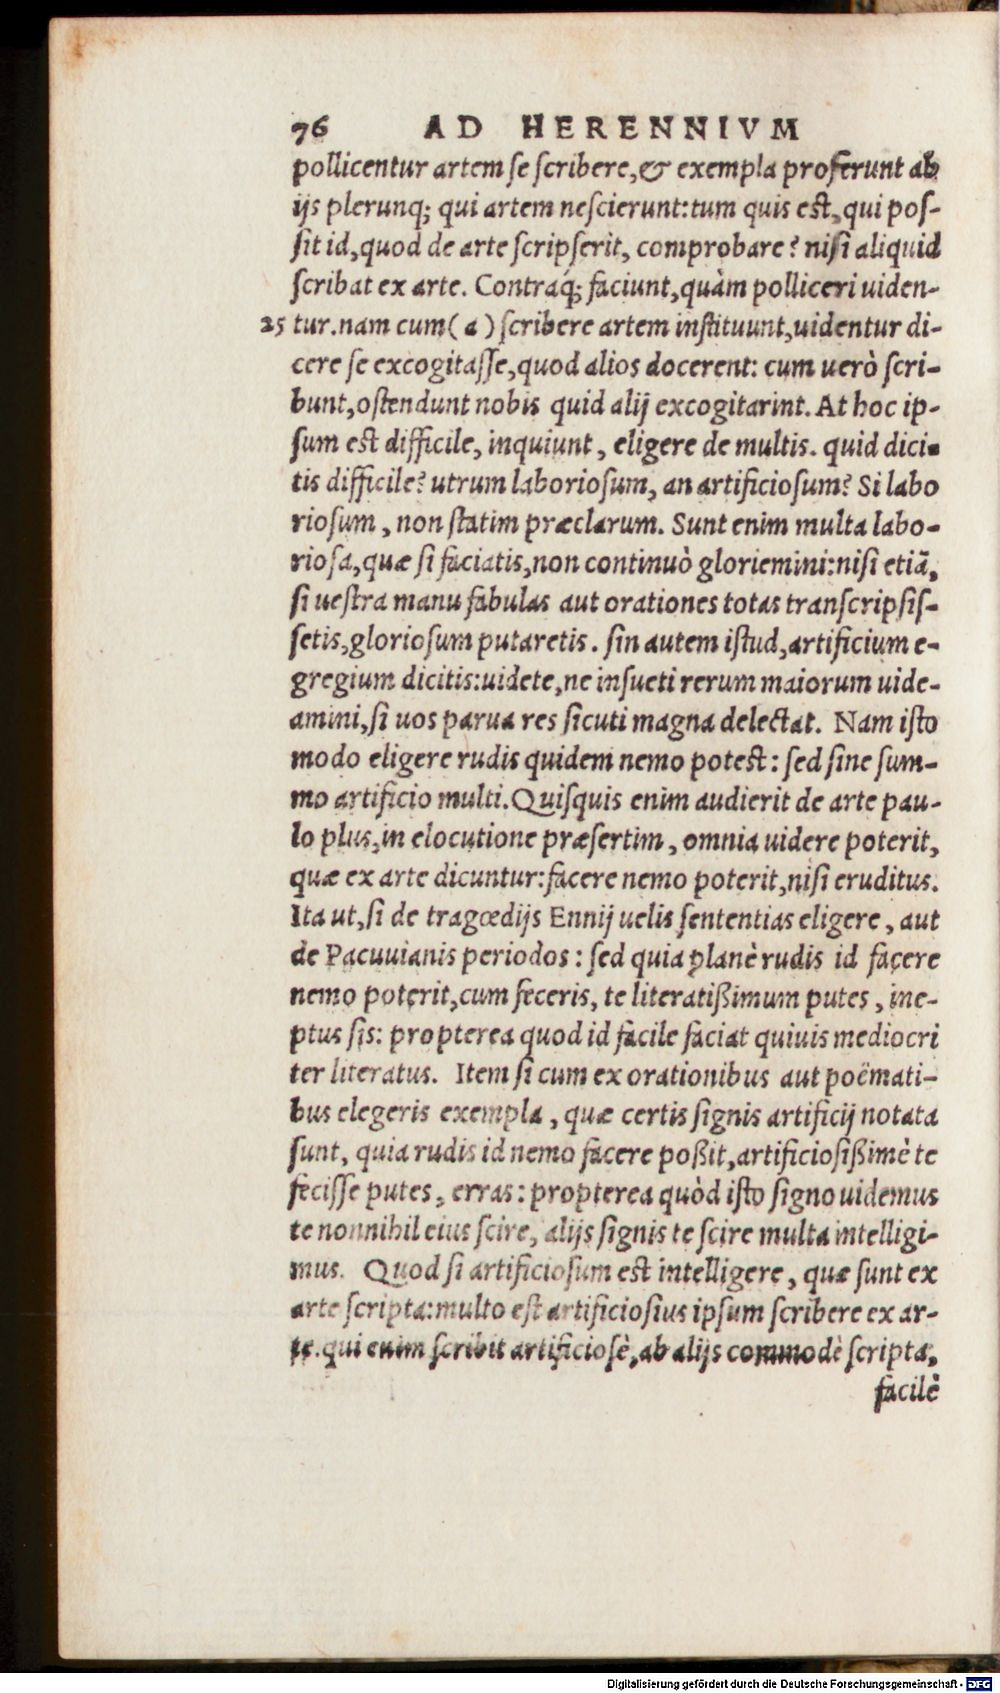 76 AD HERENNIVM
pollicentur artem se scribere,& exempla proferunt ab
ijs plerunq; qui artem nescierunt:tum quis est,qui pos-
sit id,quod de arte scripserit, comprobare? nisi aliquid
scribat ex arte. Contráq; faciunt,quàm polliceri uiden-
25 tur.nam cum(a) scribere artem instituunt,uidentur di-
cere se excogitasse,quod alios docerent: cum uerò scri-
bunt,ostendunt nobis quid alij excogitarint. At hoc ip-
sum est difficile, inquiunt, eligere de multis. quid dici-
tis difficile? utrum laboriosum, an artificiosum? Si labo
riosum, non statim præclarum. Sunt enim multa labo-
riosa,quæ si faciatis,non continuò gloriemini:nisi etiã,
si uestra manu fabulas aut orationes totas transcripsis-
setis,gloriosum putaretis. sin autem istud,artificium e-
gregium dicitis:uidete,ne insueti rerum maiorum uide-
amini,si uos parua res sicuti magna delectat. Nam isto
modo eligere rudis quidem nemo potest: sed sine sum-
mo artificio multi.Quisquis enim audierit de arte pau-
lo plus,in elocutione præsertim, omnia uidere poterit,
quæ ex arte dicuntur:facere nemo poterit,nisi eruditus.
Ita ut,si de tragœdijs Ennij uelis sententias eligere, aut
de Pacuuianis periodos: sed quia planè rudis id facere
nemo poterit,cum feceris, te literatißimum putes, ine-
ptus sis: propterea quod id facile faciat quiuis mediocri
ter literatus. Item si cum ex orationibus aut poëmati-
bus elegeris exempla, quæ certis signis artificij notata
sunt, quia rudis id nemo facere poßit,artificiosißimè te
fecisse putes, erras: propterea quòd isto signo uidemus
te nonnihil eius scire, alijs signis te scire multa intelligi-
mus. Quod si artificiosum est intelligere, quæ sunt ex
arte scripta:multo est artificiosius ipsum scribere ex ar-
te.qui enim scribit artificiosè,ab alijs commodè scripta,
facilè
Digitalisierung gefördert durch die Deutsche Forschungsgemeinschaft - DFG